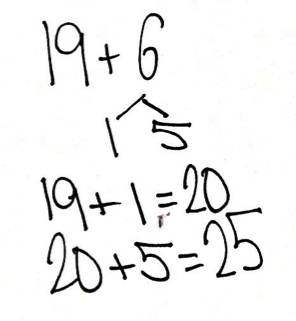 19+6
1 5
19+1=20
20+5=25